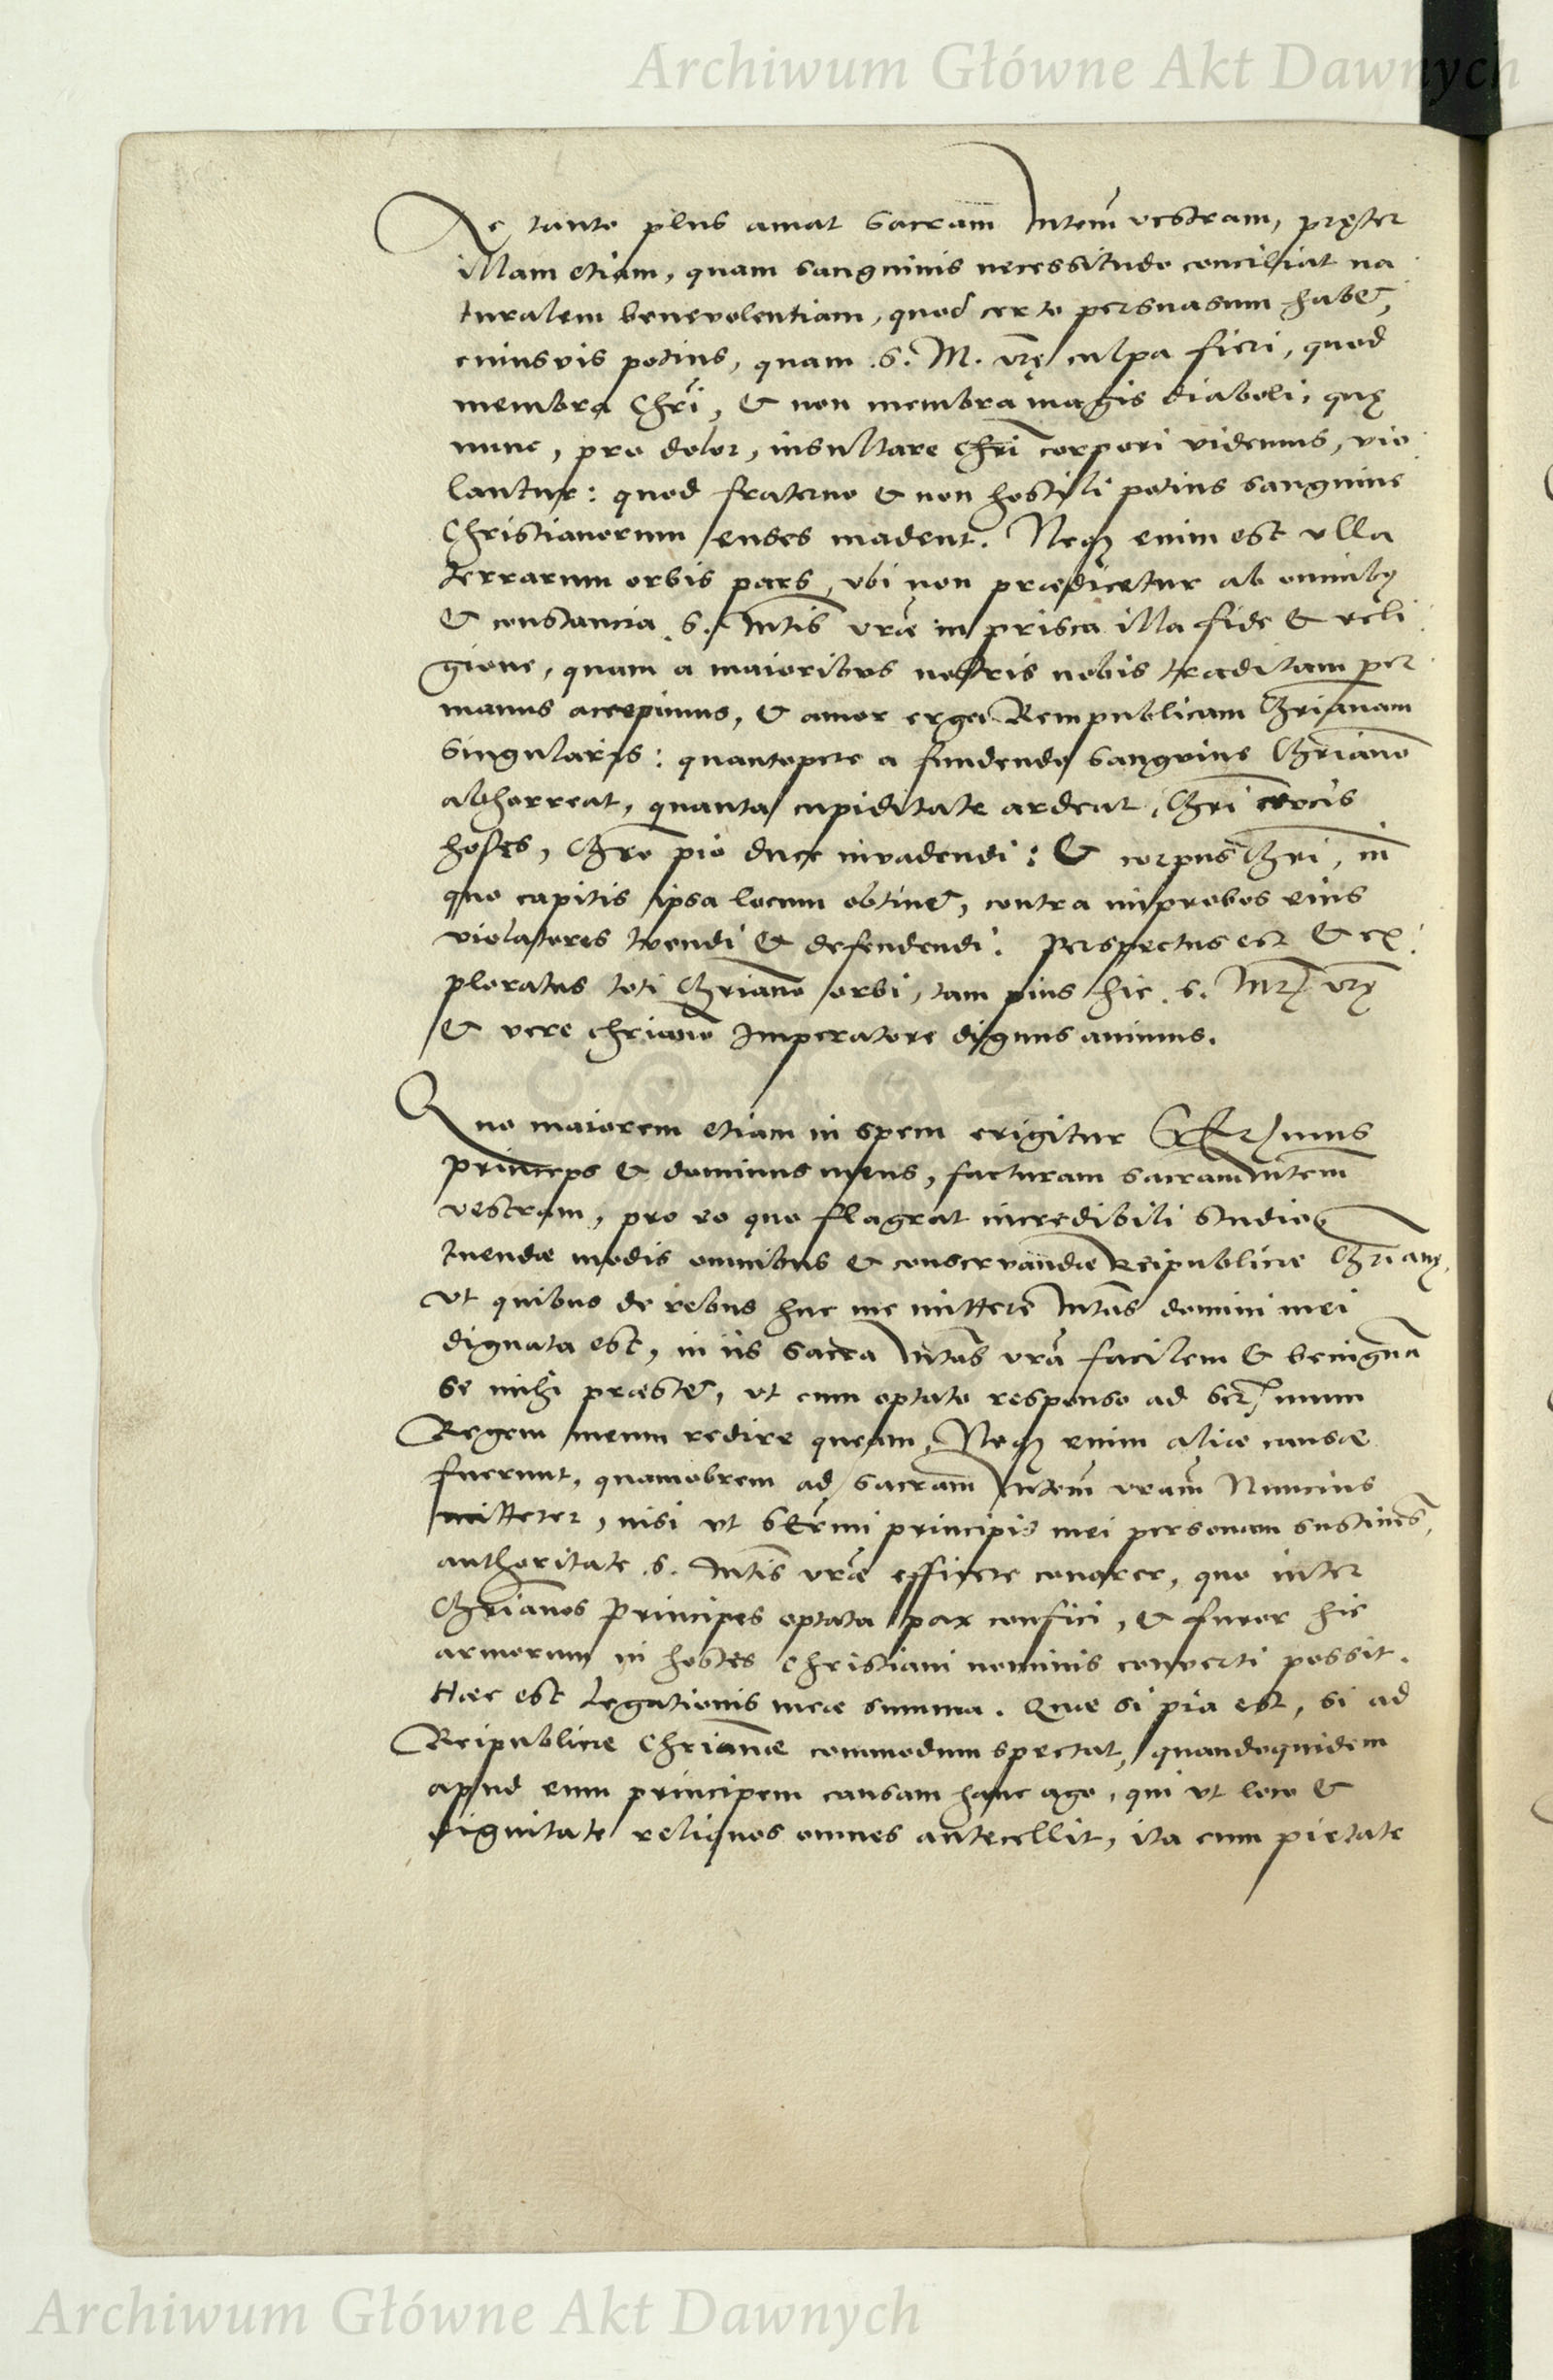 Archiwum Główne Akt Dawnych
Ac tanto plus amat sacram Mtem vestram, pręter
illam etiam, quam sanguinis necessitudo conciliat na
turalem benevolentiam, quod certo persuasum habet,
cuiusvis potius, quam S. M. vrę culpa fieri, quod
membra Chri, & non membra magis diaboli, quę
nunc, pro dolor, insultare Chri corpori videmus, vio
lantur: quod fraterno & non hostili potius sanguine
Christianorum enses madent. Neq enim est ulla
terrarum orbis pars, ubi non prædicetur ab omnibq
& constancia S. Mtis vræ in prisca illa fide & reli
gione, quam a maioribus nostris nobis traditam per
manus accepimus, & amor erga Rempublicam Chrianam
singularis: quantopere a fundendo sanguine Chriano
abhorreat, quanta cupiditate ardeat, Chri crucis
hostes, Chro pio duce invadendi: & corpus Chri, in
quo capitis ipsa locum obtinet, contra improbos eius
violatores tuendi & defendendi. Perspectus est & ex
ploratus toti Chriano orbi, tam pius hic S. Mtis vrę
& vere chriano Imperatore dignus animus.
Quo maiorem etiam in spem erigitur Ser mus
princeps & dominus meus, facturam sacram Mtem
vestram, pro eo quo flagrat incredibili studio
tuendæ modis omnibus & conservandæ Reipublicæ Chrianę,
ut quibus de rebus huc me mittere Mtas domini mei
dignata est, in iis sacra Mtas vra facilem & benignam
se mihi præstet, ut cum optato responso ad Ser mum
Regem meum redire queam. Neq enim aliæ causæ
fuerunt, quamobrem ad sacram Mtem vram Nuncius
mitterer, nisi ut Sermi principis mei personam sustinens,
authoritate S. Mtis vræ efficere conarer, quo inter
Chrianos Principes optata pax confici, & furor hic
armorum in hostes Christiani nominis converti possit.
Hæc est Legationis meæ summa. Quæ si pia est, si ad
Reipublicæ Chrianæ commodum spectat, quandoquidem
apud eum principem causam hanc ago, qui ut loco &
dignitate reliquos omnes antecellit, ita cum pietate
Archiwum Główne Akt Dawnych